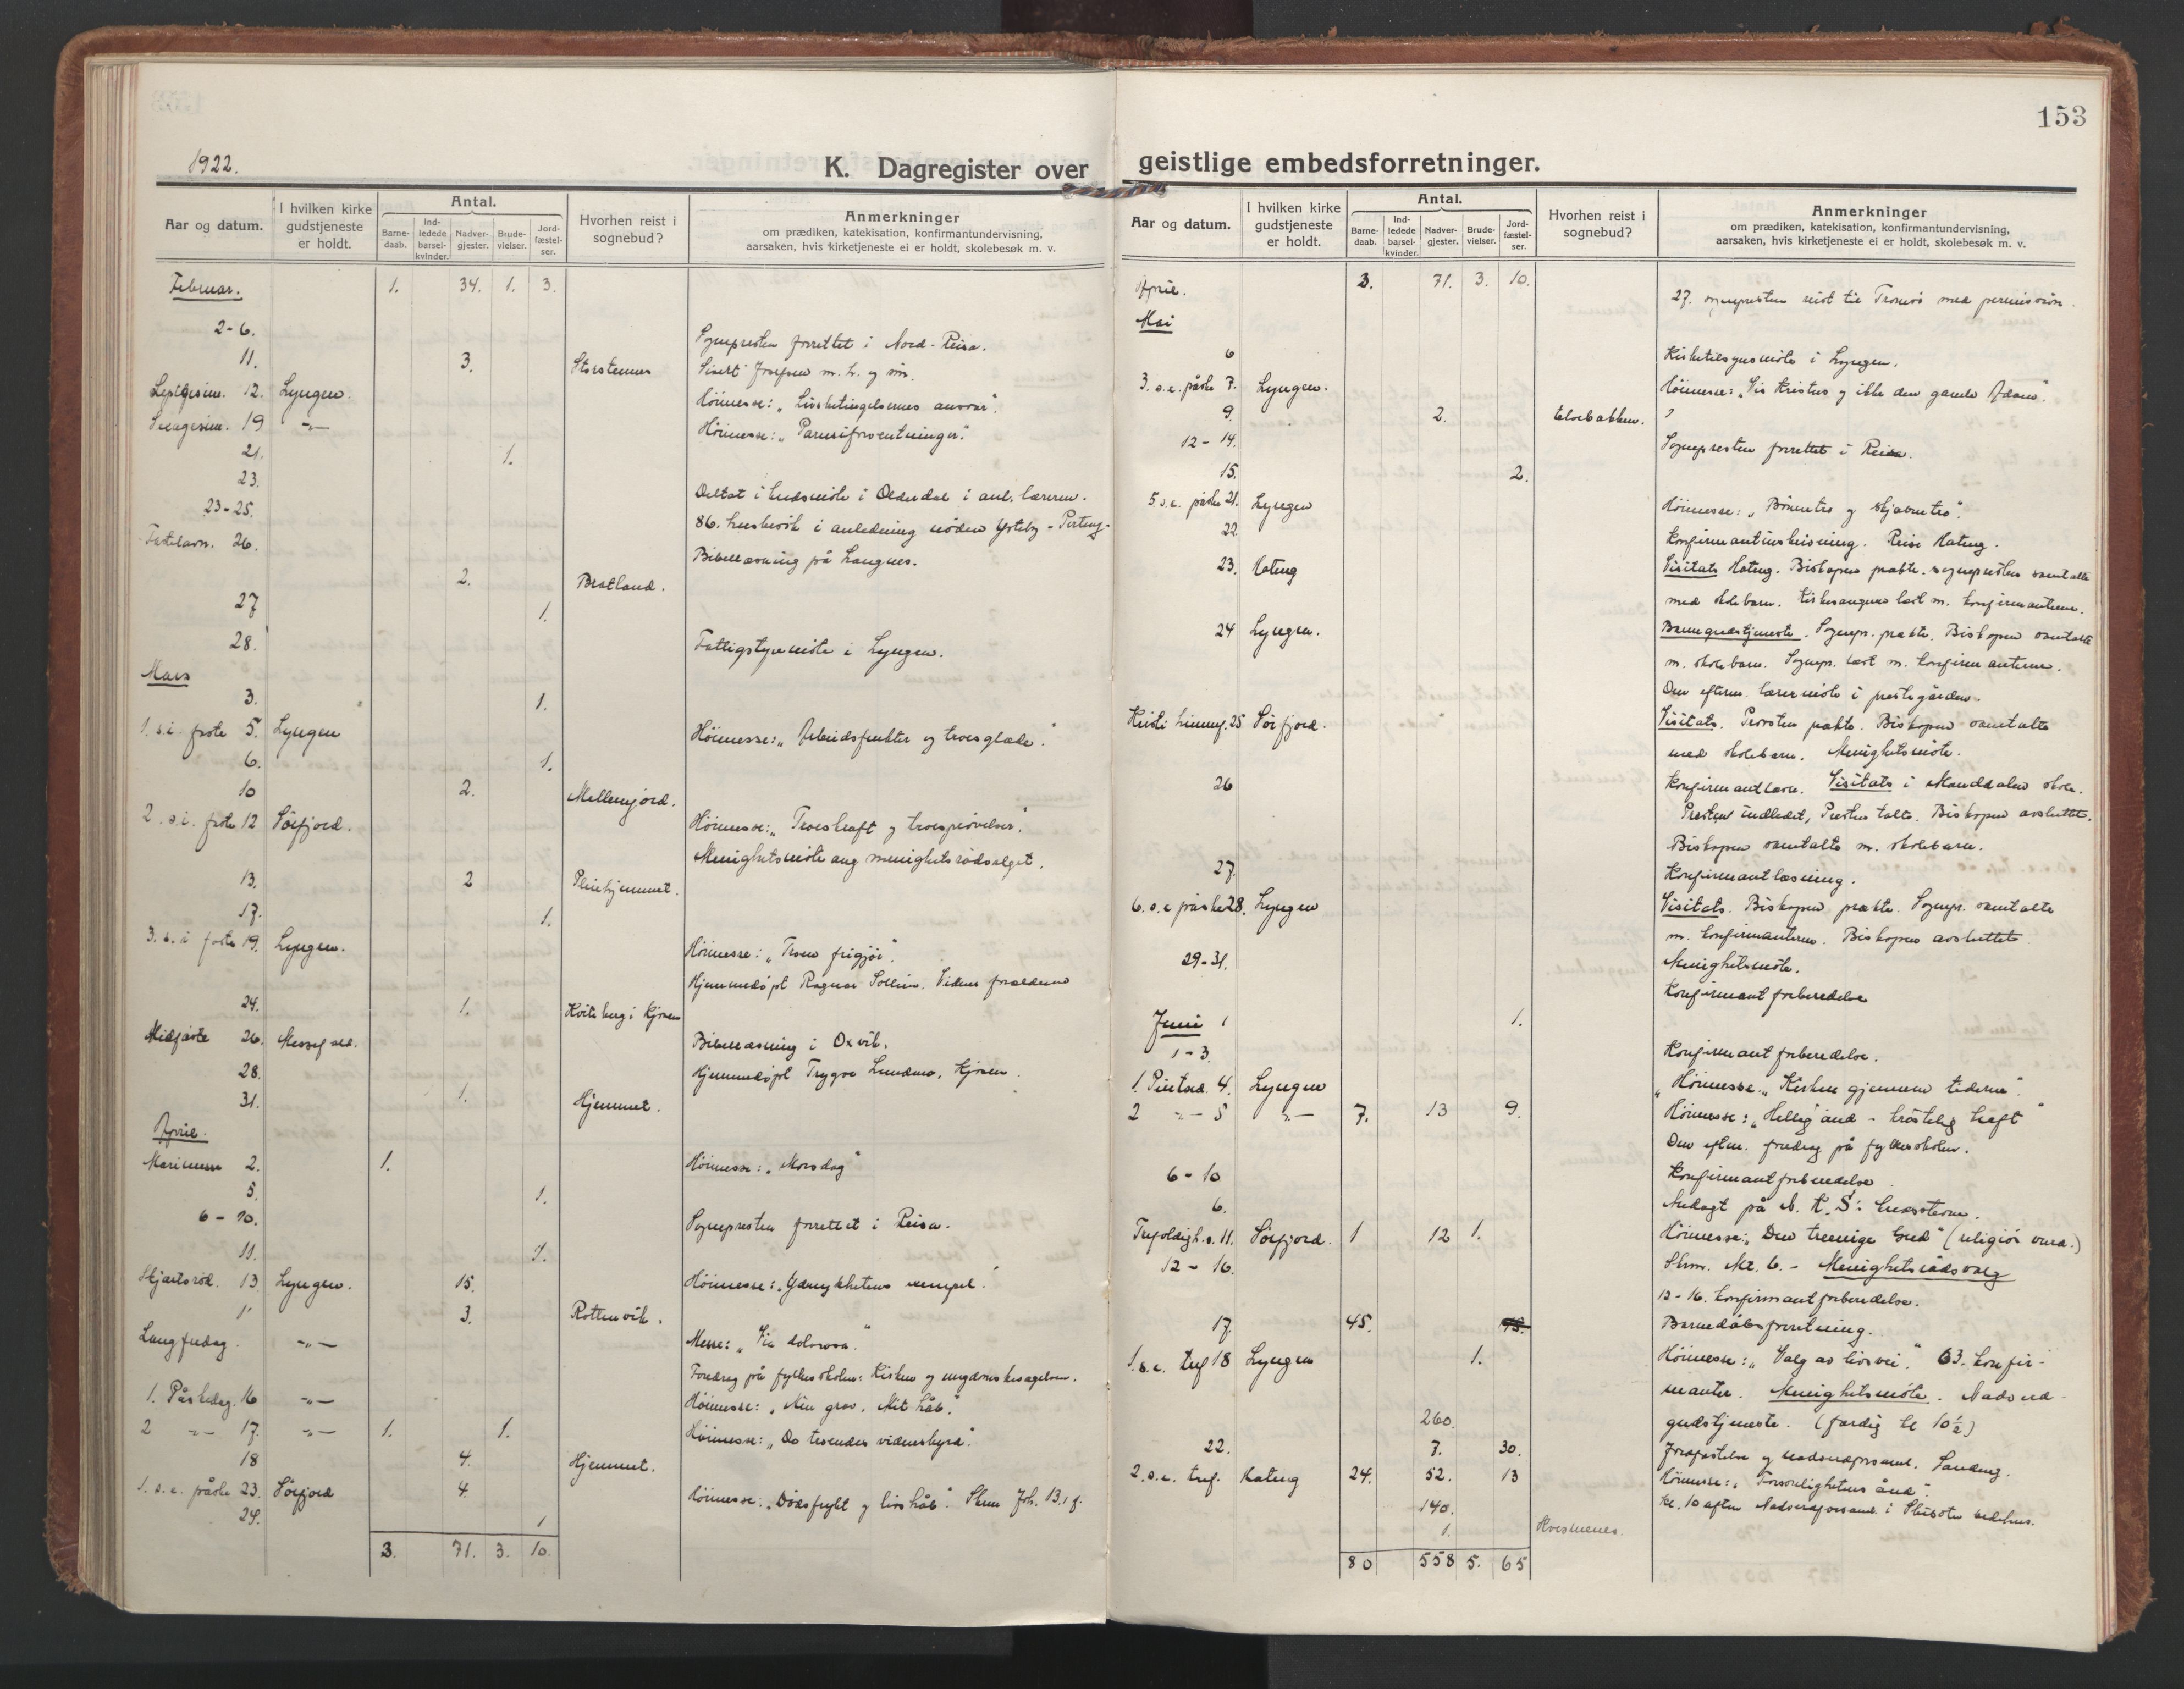 153
1922.
K. Dagregister over geistlige embedsforretninger.
Aar og datum.
I hvilken kirke gudstjeneste er holdt.
Antal.
Barne-daab.
Ind-ledede barsel-kvinder.
Nadver-gjester.
Brude-vielser.
Jord-fæstel-ser.
Hvorhen reist i sognebud?
Anmerkninger
om prædiken, katekisation, konfirmantundervisning,
aarsaken, hvis kirketjeneste ei er holdt, skolebesøk m. v.
Februar. 1. 34. 1. 3.
2-6. Sognepresten forrettet i Nord-Reisa.
11. 3. Storstennes Sivert m. h. og
12. Lyngen. Höimesse: „Livsbetingelsernes ansvar".
19 -„- Höimesse: „Parusiforventninger."
21. 1.
23. Deltat i i Olderdal i anl. læreren.
23-25. 86. husbesök i anledning nöden
Fastelavn. 26. Bibellæsning på Langnes.
2. Bratland.
27 1.
28. Fattigstyremöte i Lyngen.
Mars
3. 1.
1. s. i. faste 5. Lyngen Höimesse: „Arbeidsfrukter og troesglæde".
6. 1.
10 2. Mellemjord.
2. s. i. faste 12 Sörfjord. Höimesse: „Troeskraft og troesprövelser".
Menighetsmöte ang menighetsrådsvalget.
13. 2 Pleiehjemmet.
17. 1.
3. s. i faste 19. Lyngen. Höimesse: „Troen frigjör".
Hjemmedöpt Ragnar Vidner forældrene
24. 1. Kviteberg i Kjosen
Midfaste 26. Messefald. Bibellæsning i Oxvik.
28. Hjemmedöpt Trygve Lundmo, Kjosen.
31. 1. Hjemmet.
April.
Marimesse 2. 1. Höimesse: „Morsdag"
5. 1.
6-10. Sognepresten forrettet i Reisa.
11. 1.
Skjærtorsd. 13. Lyngen. 15. Höimesse:
3. Rottenvik.
Langfredag. -„- Messe: „Via dolorosa."
Foredrag på fylkesskolen: Kirken og ungdomsbevægelsen.
1. Påskedag. 16 -„- Höimesse: „Min grav. Mit håb."
2 -„- 17. -„- 1. 1. Höimesse: „De tusenders vidnesbyrd".
18 4. Hjemmet.
1. s. e. påske 23. Sörfjord 4. Höimesse: „Dödsfrykt og livshåb". Skrm Joh. 13,1 f.
24. 1
3. 71. 3. 10.
Aar og datum.
I hvilken kirke gudstjeneste er holdt.
Antal.
Barne-daab.
Ind-ledede barsel-kvinder.
Nadver-gjester.
Brude-vielser.
Jord-fæstel-ser.
Hvorhen reist i sognebud?
Anmerkninger
om prædiken, katekisation, konfirmantundervisning,
aarsaken, hvis kirketjeneste ei er holdt, skolebesøk m. v.
April. 3. 71. 3. 10. 27. sognepresten reist til Tromsö med permission.
Mai
6 Kirketilsynsmöte i Lyngen.
3. s. e. påske 7. Lyngen. Höimesse: „Vis Kristus og ikke den gamle Adam".
9. 2. Elvebakken.
12-14. Sognepresten forrettet i Reisa.
15. 2.
5. s. e. påske 21. Lyngen Höimesse: „Bönnetro og skjæbnetro".
22. Konfirmantindskrivning. Reise Kaatng.
23. Visitats Biskopen prækte. sognepresten samtalte
med skolebarn. Kirkesangeren læst m. konfirmanterne.
24 Lyngen. Barnegudstjeneste. Sognepr. prækte. Biskopen samtalte
m. skolebarn. Sognepr. læst m. konfirmanterne.
Om efterm. lærermöte i prestegården.
Kristi himmelf. 25 Sörfjord. Visitats. Provsten prækte. Biskopen samtalte
med skolebarn. Menighetsmöte.
26 Konfirmantlæsn. Visitats i Manddalen skole.
Presten indledet, Provsten talte. Biskopen avsluttet.
Biskopen samtalte m. skolebarn.
27. Konfirmantlæsning.
6. s. e påske 28. Lyngen Visitats. Biskopen prækte. Sognepr. samtalte
m. konfirmanterne. Biskopen avsluttet.
Menighetsmöte.
29-31. Konfirmantforberedelse
Juni 1 1.
1-3. Konfirmantforberedelse.
1. Pinsed. 4. Lyngen „Höimesse. „Kirken gjennem tiderne".
2 -„- 5 -„- 7. 13 9. Höimesse: „Hellig ånd - kraft"
Om eftm. foredrag på fylkesskolen.
6-10 Konfirmantforberedelse.
6. Andagt på
Trefoldigh. s. 11. Sörfjord. 1 12 1. Höimesse: „Den treenige Gud"
Skrm. Mt. 6. - Menighetsrådsvalg
12-16. 12-16. Konfirmantforberedelse.
17. 45. Barnedåbsforretning.
1. s. e. tref 18 Lyngen 1. Höimesse: „Valg av livsvei." 63. konfir-
manter. Menighetsmöte. Nadverd-
260. gudstjeneste. (færdig kl 10½)
22. 7. 30.
2. s. e. tref. 24. 52. 13 Höimesse: „Forsonlighetens ånd".
140. Kl. 10 aften i Skibotn bedehus.
1.
80 558 5. 65